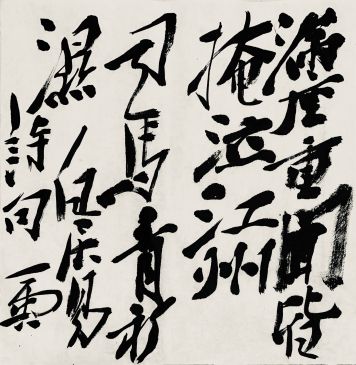 滿座重聞皆
掩泣江州
司馬青衫
濕 白居易
詩句